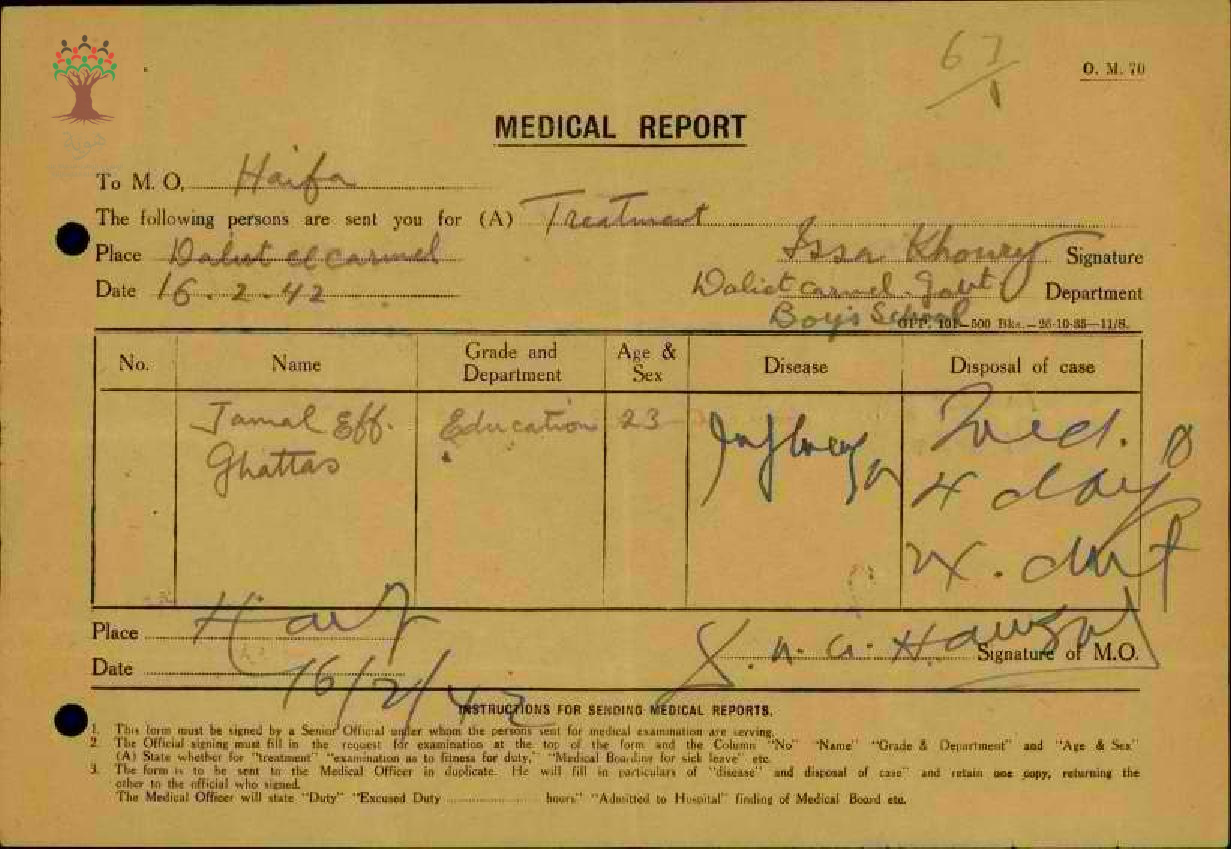 67/1
O. M. 70
هوية
MEDICAL REPORT
To M. O. Haifa
The following persons are sent you for (A) Treatment
Place Daliet el carmel
Issa Khoury Signature
Date 16.2.42
Daliet carmel. Govt Department
Boy's School
GPP. 101—500 Bks.—26-10-35—11/8.
No. Name Grade and Department Age & Sex Disease Disposal of case
Jamal Eff. Education 23 Influenza Med.
Ghattas
4 days
Place Haifa
Signature of M.O.
Date 16/2/42
INSTRUCTIONS FOR SENDING MEDICAL REPORTS.
1. This form must be signed by a Senior Official under whom the persons sent for medical examination are serving.
2. The Official signing must fill in the request for examination at the top of the form and the Column "No" "Name" "Grade & Department" and "Age & Sex"
(A) State whether for "treatment" "examination as to fitness for duty," "Medical Boarding for sick leave" etc.
3. The form is to be sent to the Medical Officer in duplicate. He will fill in particulars of "disease" and disposal of case" and retain one copy, returning the
other to the official who signed.
The Medical Officer will state "Duty" "Excused Duty ............ hours" "Admitted to Hospital" finding of Medical Board etc.